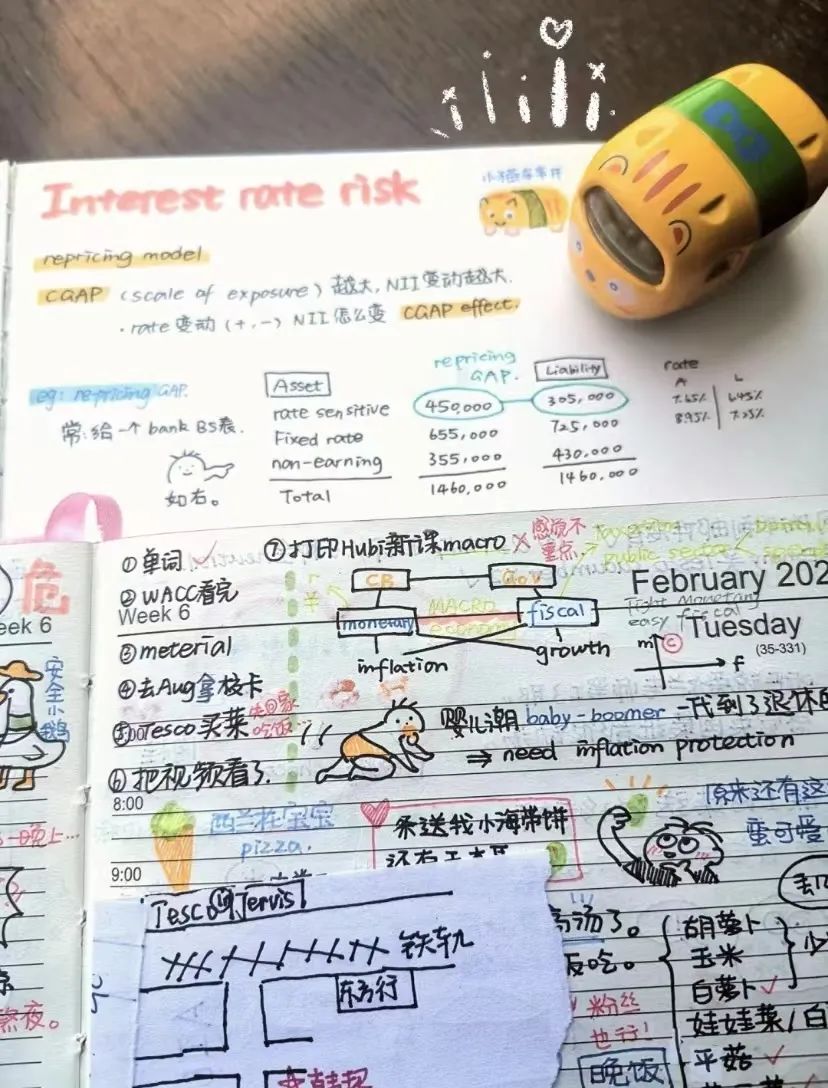 Interest rate risk
小猫面事件
repricing model
CGAP (scale of exposure) 越大, NII 变动越大.
· rate 变动 (+, -) NII 怎么变 CGAP effect.
eg: repricing GAP.
常: 给一个 bank BS表.
如右。
Asset repricing GAP. Liability
rate sensitive 450,000 305,000
Fixed rate 655,000 725,000
non-earning 355,000 430,000
Total 1460,000 1460,000
rate
A L
7.65% 6.45%
8.95% 7.25%
危
eek 6
安全小鹅
一晚上…
熬夜。
① 单词
② WACC看完
Week 6
③ meterial
④ 去Aug拿校卡
⑤ Tesco买菜 先回家吃饭…
⑥ 把视频看了.
⑦ 打印Hubi新课macro
感觉不重点.
public sector
CB Gov
monetary MACRO economy fiscal
inflation growth
February 202
Tight Monetary
easy fiscal
Tuesday
(35-331)
m c f
婴儿潮 baby-boomer 一代到了退休
⇒ need inflation protection
8:00
西兰花宝宝
pizza.
9:00
条送我小海带饼
原来还有这
蛮可爱
Tesco Jervis
铁轨
东方行
汤了。
反吃。
粉丝
也行!
晚饭
胡萝卜
玉米
白萝卜
娃娃菜/白
平菇
少